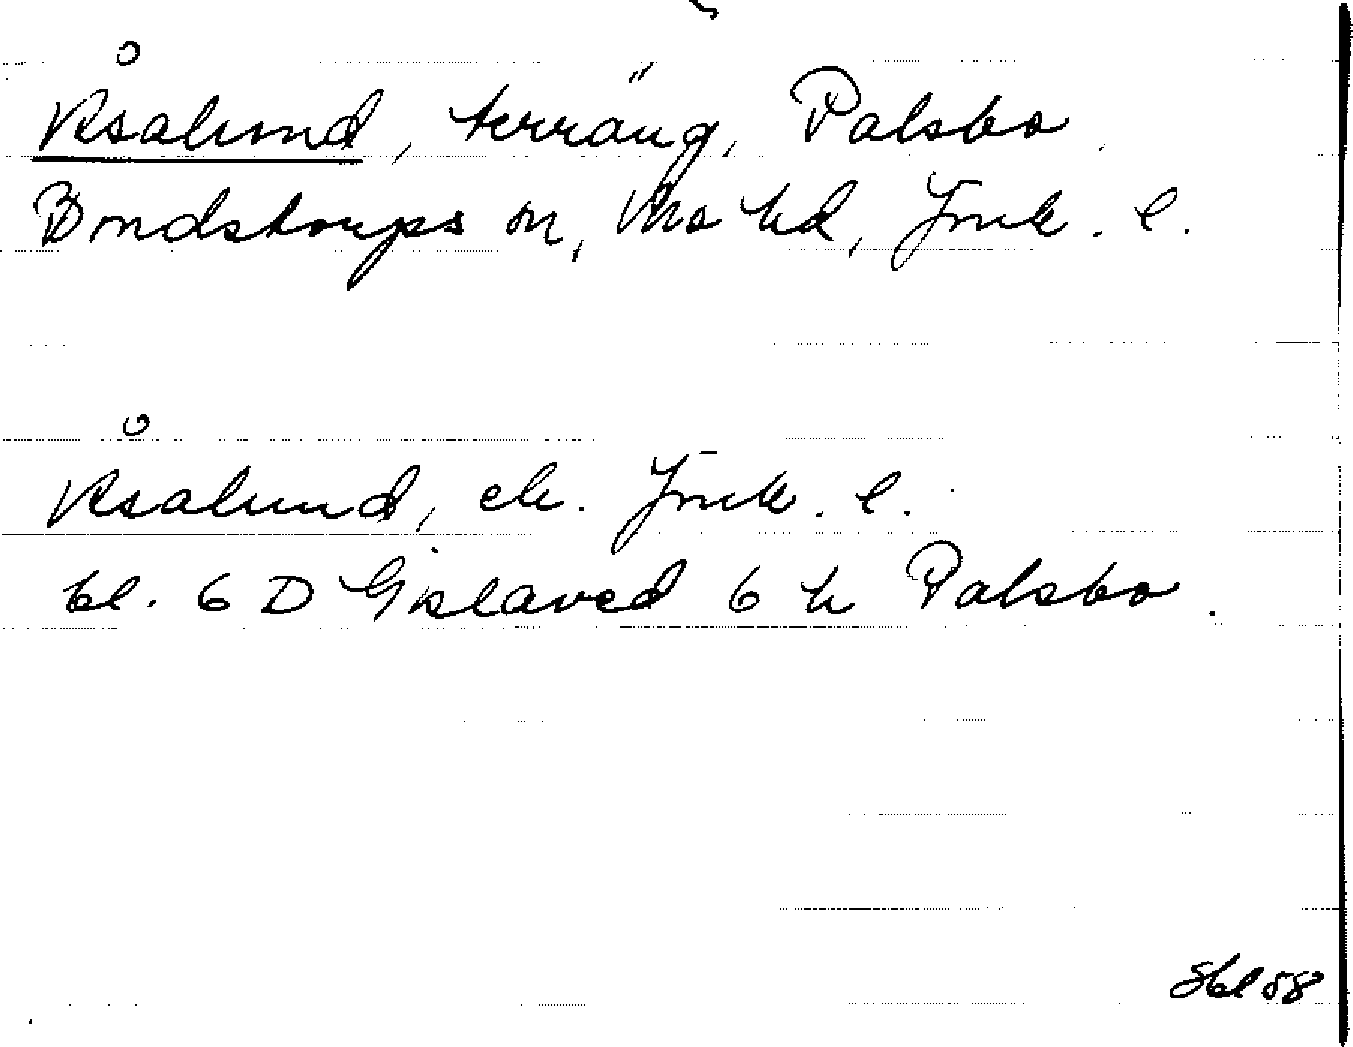 Åsalund, terräng, Palsbo.
Bondstorps sn, Mo hd, Jönk. l.
Åsalund, ek. Jönk. l.
bl. 6 D Gislaved 6 h Palsbo.
Sbl 58